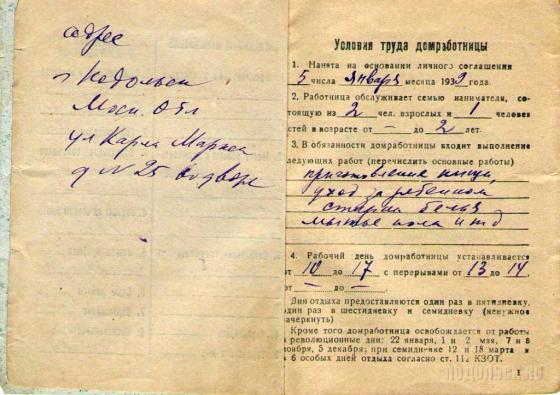 адрес
г Подольск
Моск. Обл
ул Карла Маркса
д N 25 во дворе
Условия труда домработницы
1. Нанята на основании личного соглашения
5 числа января месяца 1939 года.
2. Работница обслуживает семью нанимателя, со-
тоящую из 2 чел. взрослых и 1 человек
стей в возрасте от – до 2 лет.
3. В обязанности домработницы входит выполнение
ледующих работ (перечислить основные работы)
приготовление пищи,
уход за ребенком
стирка белья
мытье пола и т д
4. Рабочий день домработницы устанавливается
от 10 до 17 с перерывами от 13 до 14.
от – до –.
Дни отдыха предоставляются один раз в пятидневку,
один раз в шестидневку и семидневку (ненужное
зачеркнуть)
Кроме того домработница освобождается от работы
в революционные дни: 22 января, 1 и 2 мая, 7 и 8
ноября, 5 декабря; при семидневке 12 и 18 марта и
в 6 особых дней отдыха согласно ст. 112 КЗОТ.
1